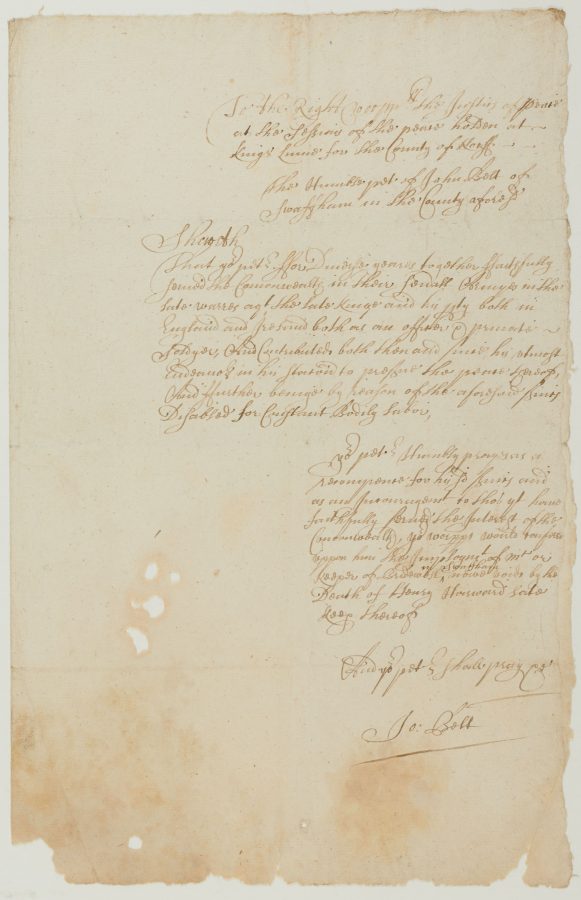 To the Right worpll the Justices of Peace
at the Session of the peace holden at
Kings Linne for the County of Norff
The Humble pet. of John Belt of
Swaffham in the County aforesd
Sheweth
That yor petr ffor Diverse yeares together ffaithfully
served the Comonwealth in their severall Armyes in the
late warres agt the late Kinge and his pty both in
England and Ireland both as an officer & private
Soldyer, And Contributed both then and since his utmost
endeavor in his station to preserve the peace thereof,
And ffurther beinge by reason of the aforesaid
Disabled for Constant Bodily Labor,
yor petr Humbly prayes as a
recompence for his sd and
as an Incouragemt to those yt have
faithfully served the Interest of the
Comonwealth, yor worpps would conferre
uppon him the Imploymt of Mr or
keeper of Bridewell in Swaffham nowe voide by the
Death of Henry Harward late
keepr thereof
And yor petr shall pray &c
Jo: Belt